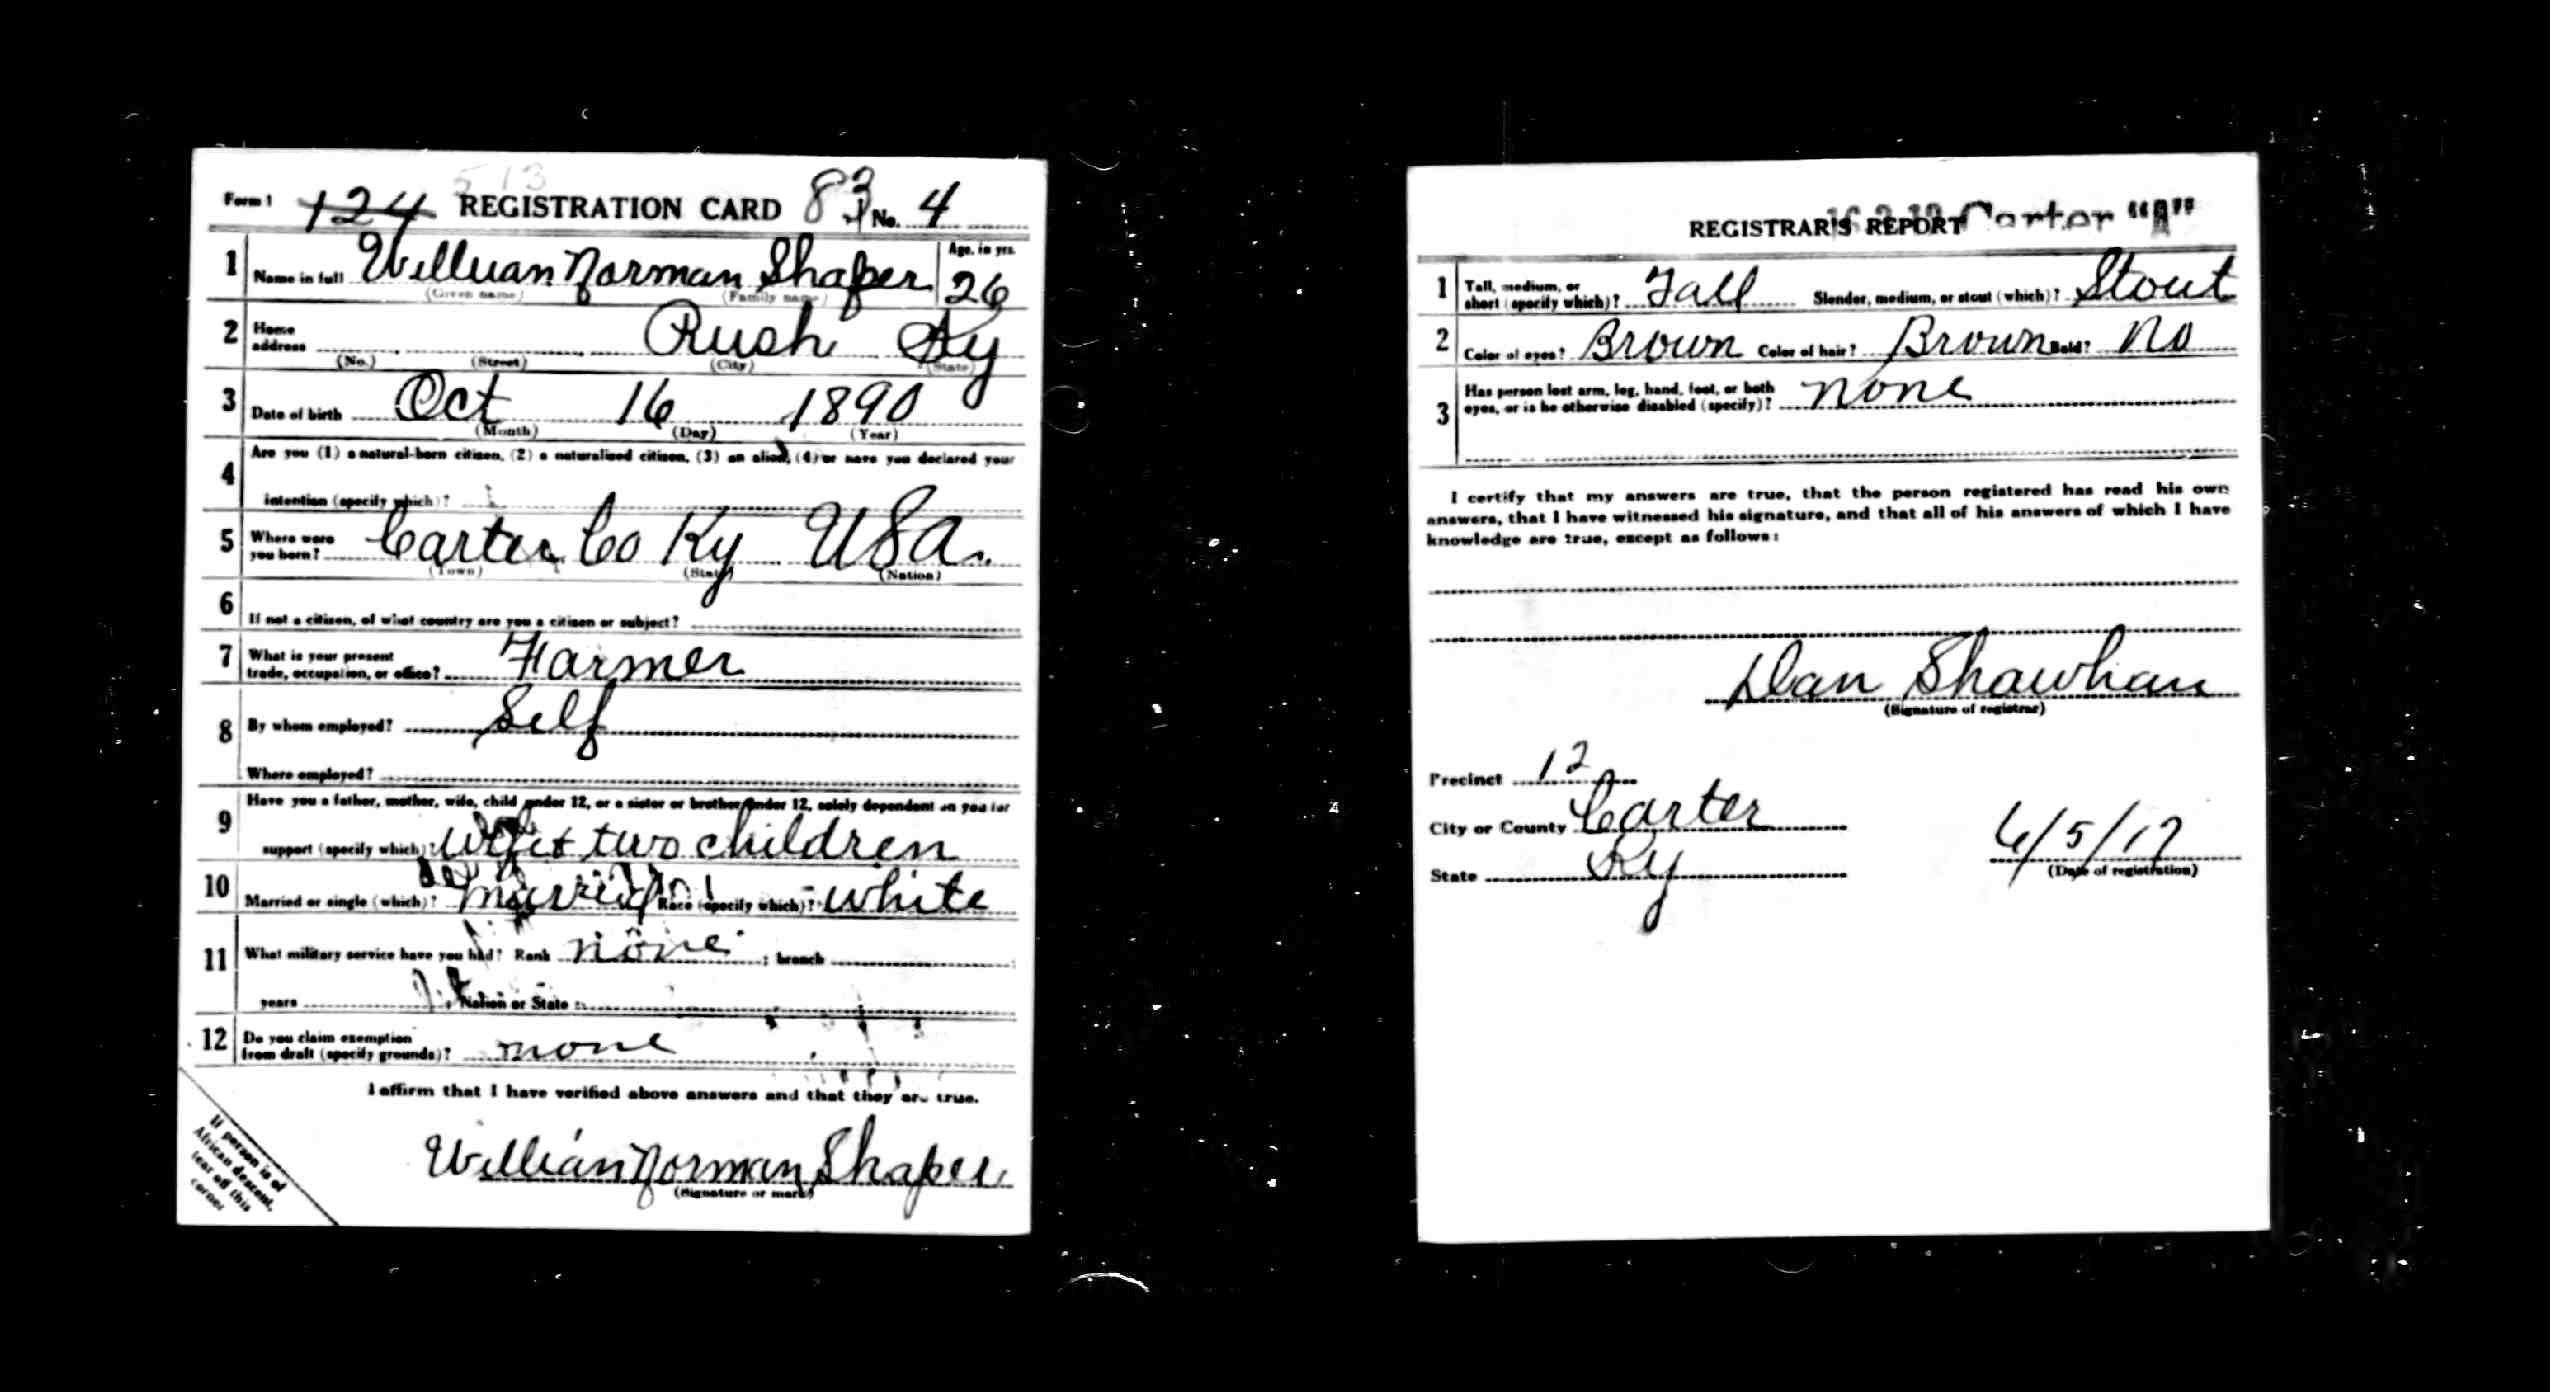 513
Form 1 124 REGISTRATION CARD 83 No. 4
1 Name in full William Norman Shaper Age, in yrs. 26
(Given name) (Family name)
2 Home address Rush Ky
(No.) (Street) (City) (State)
3 Date of birth Oct 16 1890
(Month) (Day) (Year)
4 Are you (1) a natural-born citizen, (2) a naturalized citizen, (3) an alien, (4) or have you declared your
intention (specify which)?
5 Where were you born? Carter Co Ky USA.
(Town) (State) (Nation)
6 If not a citizen, of what country are you a citizen or subject?
7 What is your present trade, occupation, or office? Farmer
8 By whom employed? Self
Where employed?
9 Have you a father, mother, wife, child under 12, or a sister or brother under 12, solely dependent on you for
support (specify which)? Wife & two children
10 Married or single (which)? Married Race (specify which)? white
11 What military service have you had? Rank none ; branch
years Nation or State
12 Do you claim exemption from draft (specify grounds)? none
I affirm that I have verified above answers and that they are true.
William Norman Shaper
(Signature or mark)
If person is of
African descent,
tear off this
corner
REGISTRAR'S REPORT Carter "A"
1 Tall, medium, or short (specify which)? Tall Slender, medium, or stout (which)? Stout
2 Color of eyes? Brown Color of hair? Brown Bald? No
3 Has person lost arm, leg, hand, foot, or both eyes, or is he otherwise disabled (specify)? none
I certify that my answers are true, that the person registered has read his own
answers, that I have witnessed his signature, and that all of his answers of which I have
knowledge are true, except as follows:
Dan Shawhan
(Signature of registrar)
Precinct 12
City or County Carter
State Ky
6/5/17
(Date of registration)